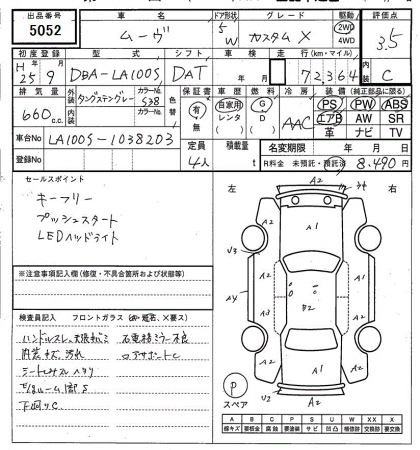 出品番号 車名 ドア形状 グレード 駆動 評価点
5052 ムーヴ 5 W カスタム X 2WD 4WD 3.5
初度登録 型式 シフト 車検 走行(km・マイル) 内装
H 25年 9月 DBA-LA100S DAT 年 月 72364 C
排気量 外装 カラーNo. 色替 保証書 車歴 燃料 冷房 装備(純正部品に限る)
660 c.c. タングステングレー S38 有 自家用 G AAC PS PW ABS
内装 カラーNo. 無 レンタ D エアB AW SR
( ) 革 ナビ TV
車台No LA100S-1038203 定員 積載量 名変期限 年 月 日
登録No 4人 t R料金 未預託・預託済 8,490円
セールスポイント
キーフリー
プッシュスタート
LEDヘッドライト
※注意事項記入欄(修復・不具合箇所および状態等)
検査員記入 フロントガラス
ハンドルスレ 右電格ミラー不良
内装キズ、汚れ ロアサポートC
下廻りC
左 右
A2
A2 A1 A2
V3
A4 A2 A1 A2
A3 B2
A2 A1 A2
V2 A2
P
スペア
A B C P S U W XX X
線キズ 要板金 腐蝕 要塗装 サビ 凹凸 補修跡 交換跡 要交換